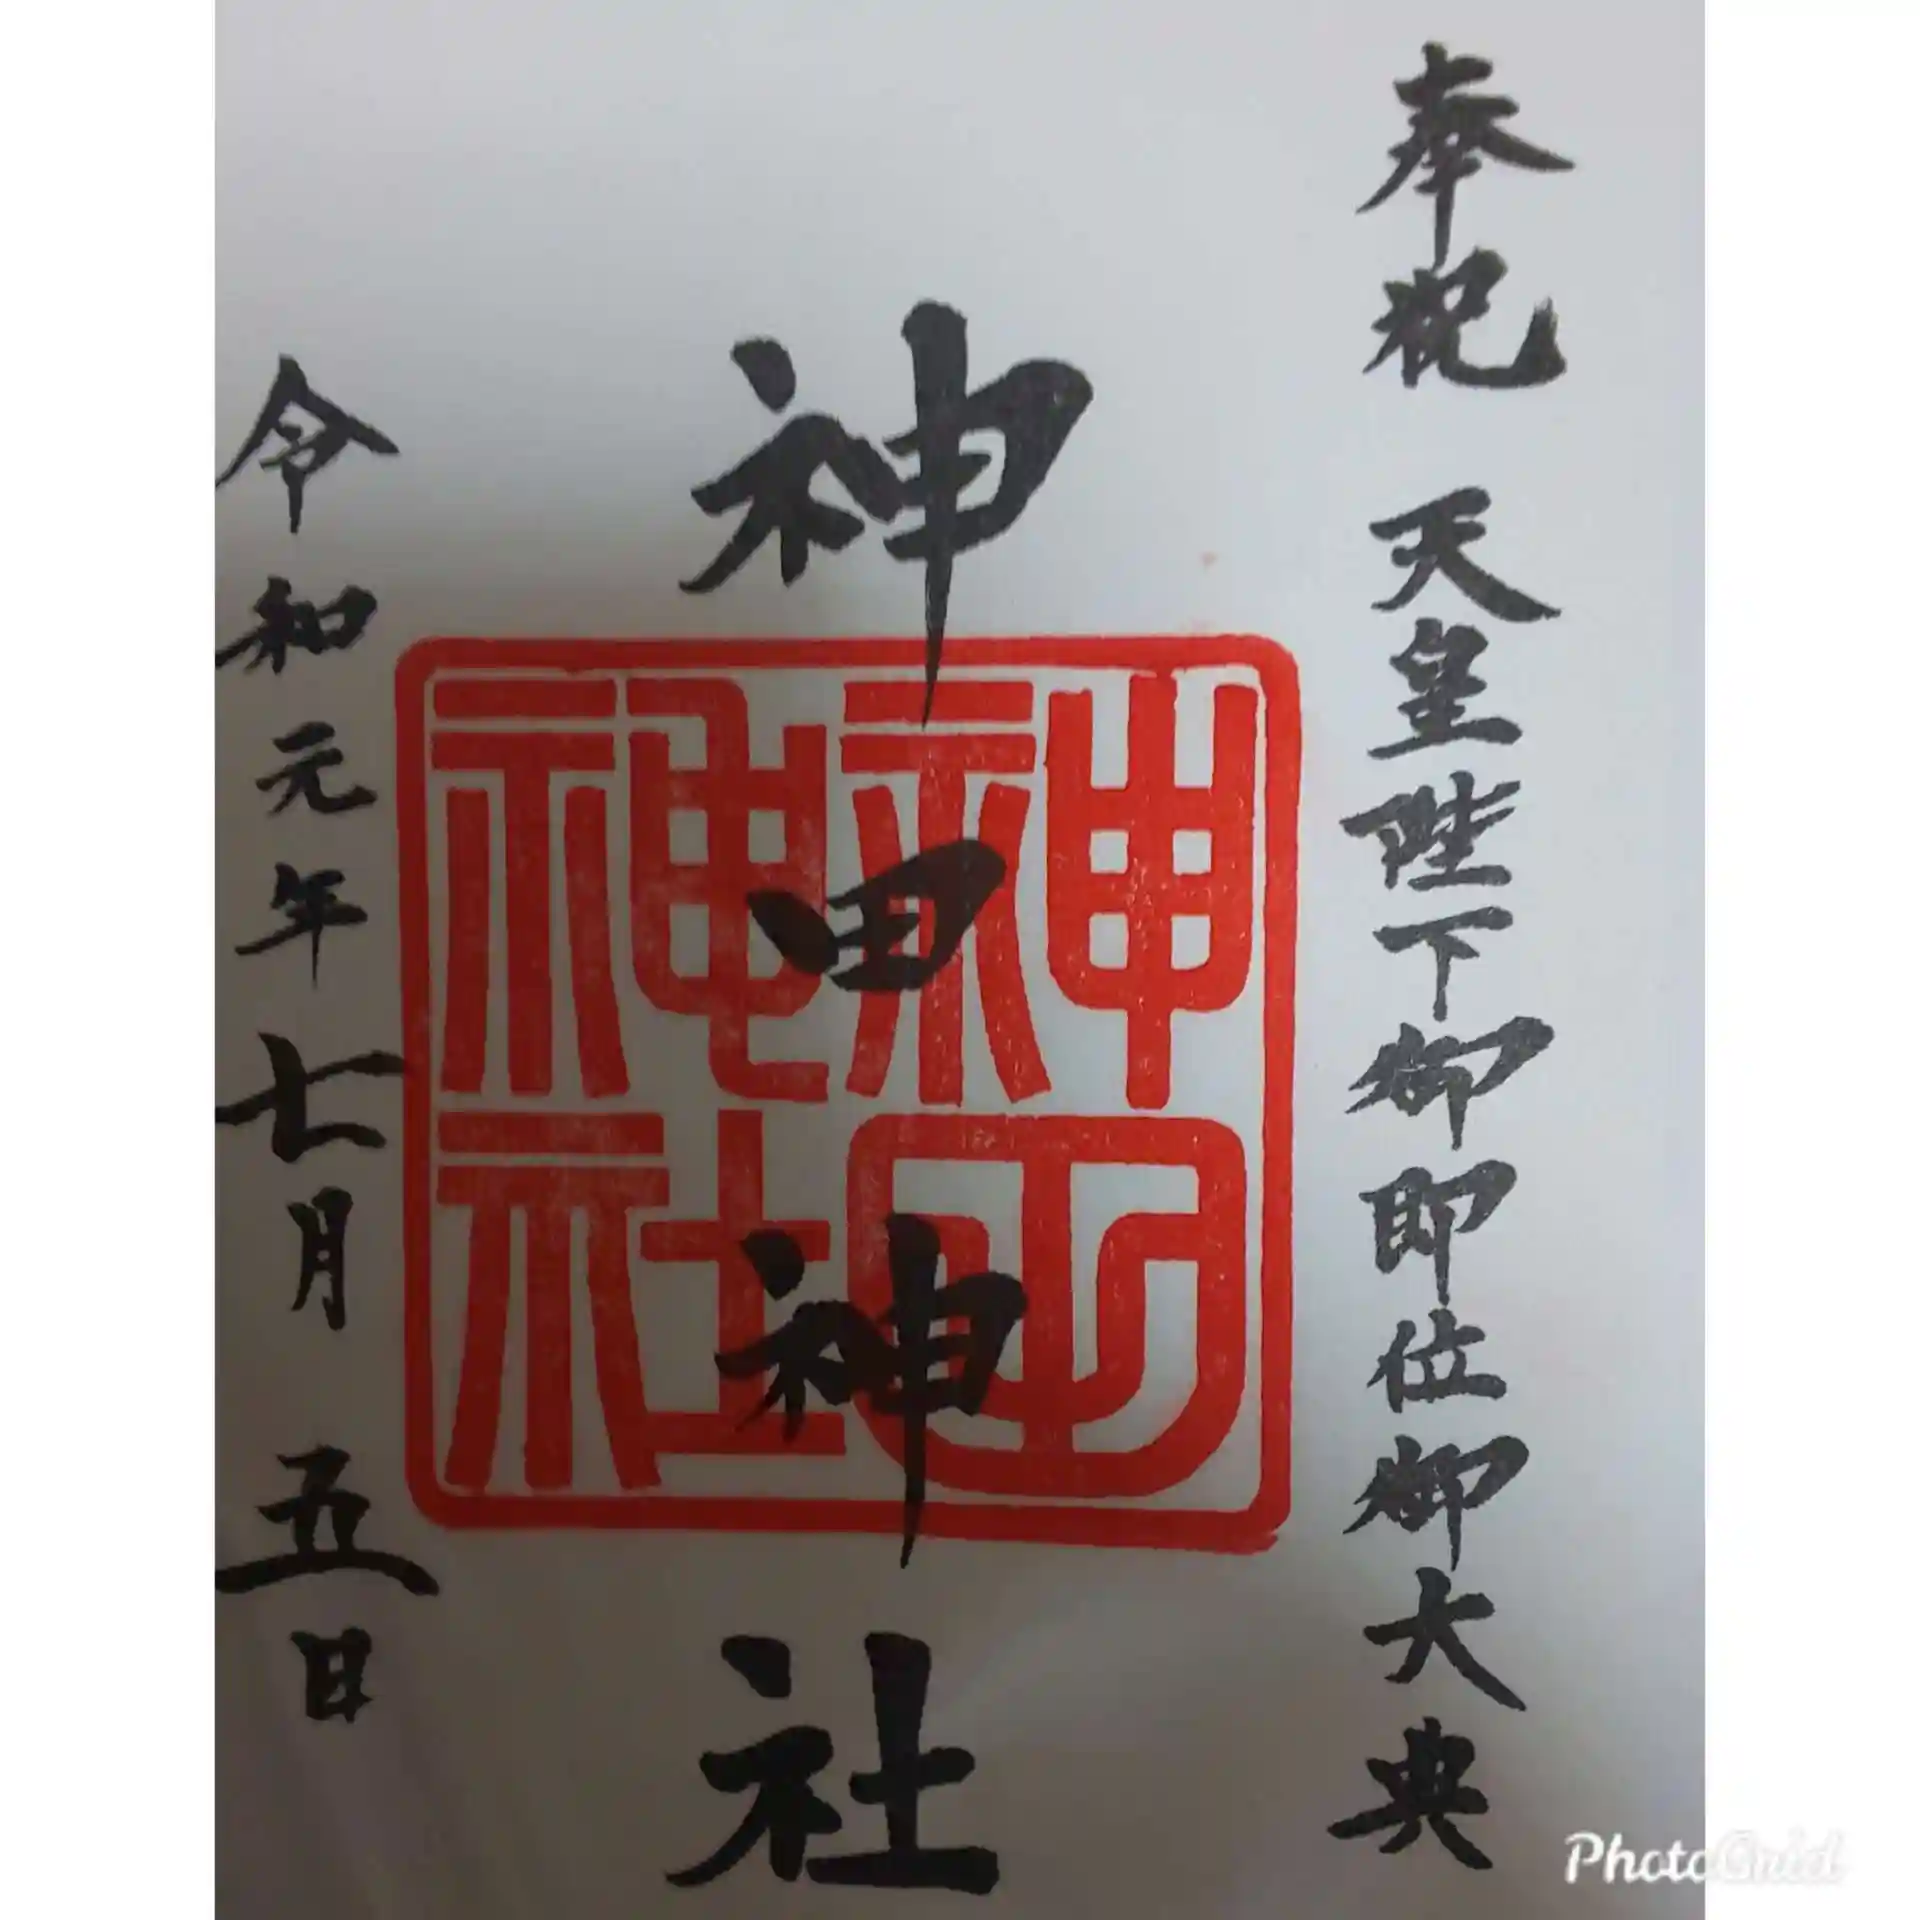 奉祝 天皇陛下御即位御大典
神田神社
令和元年七月五日
神田
神社
PhotoGrid